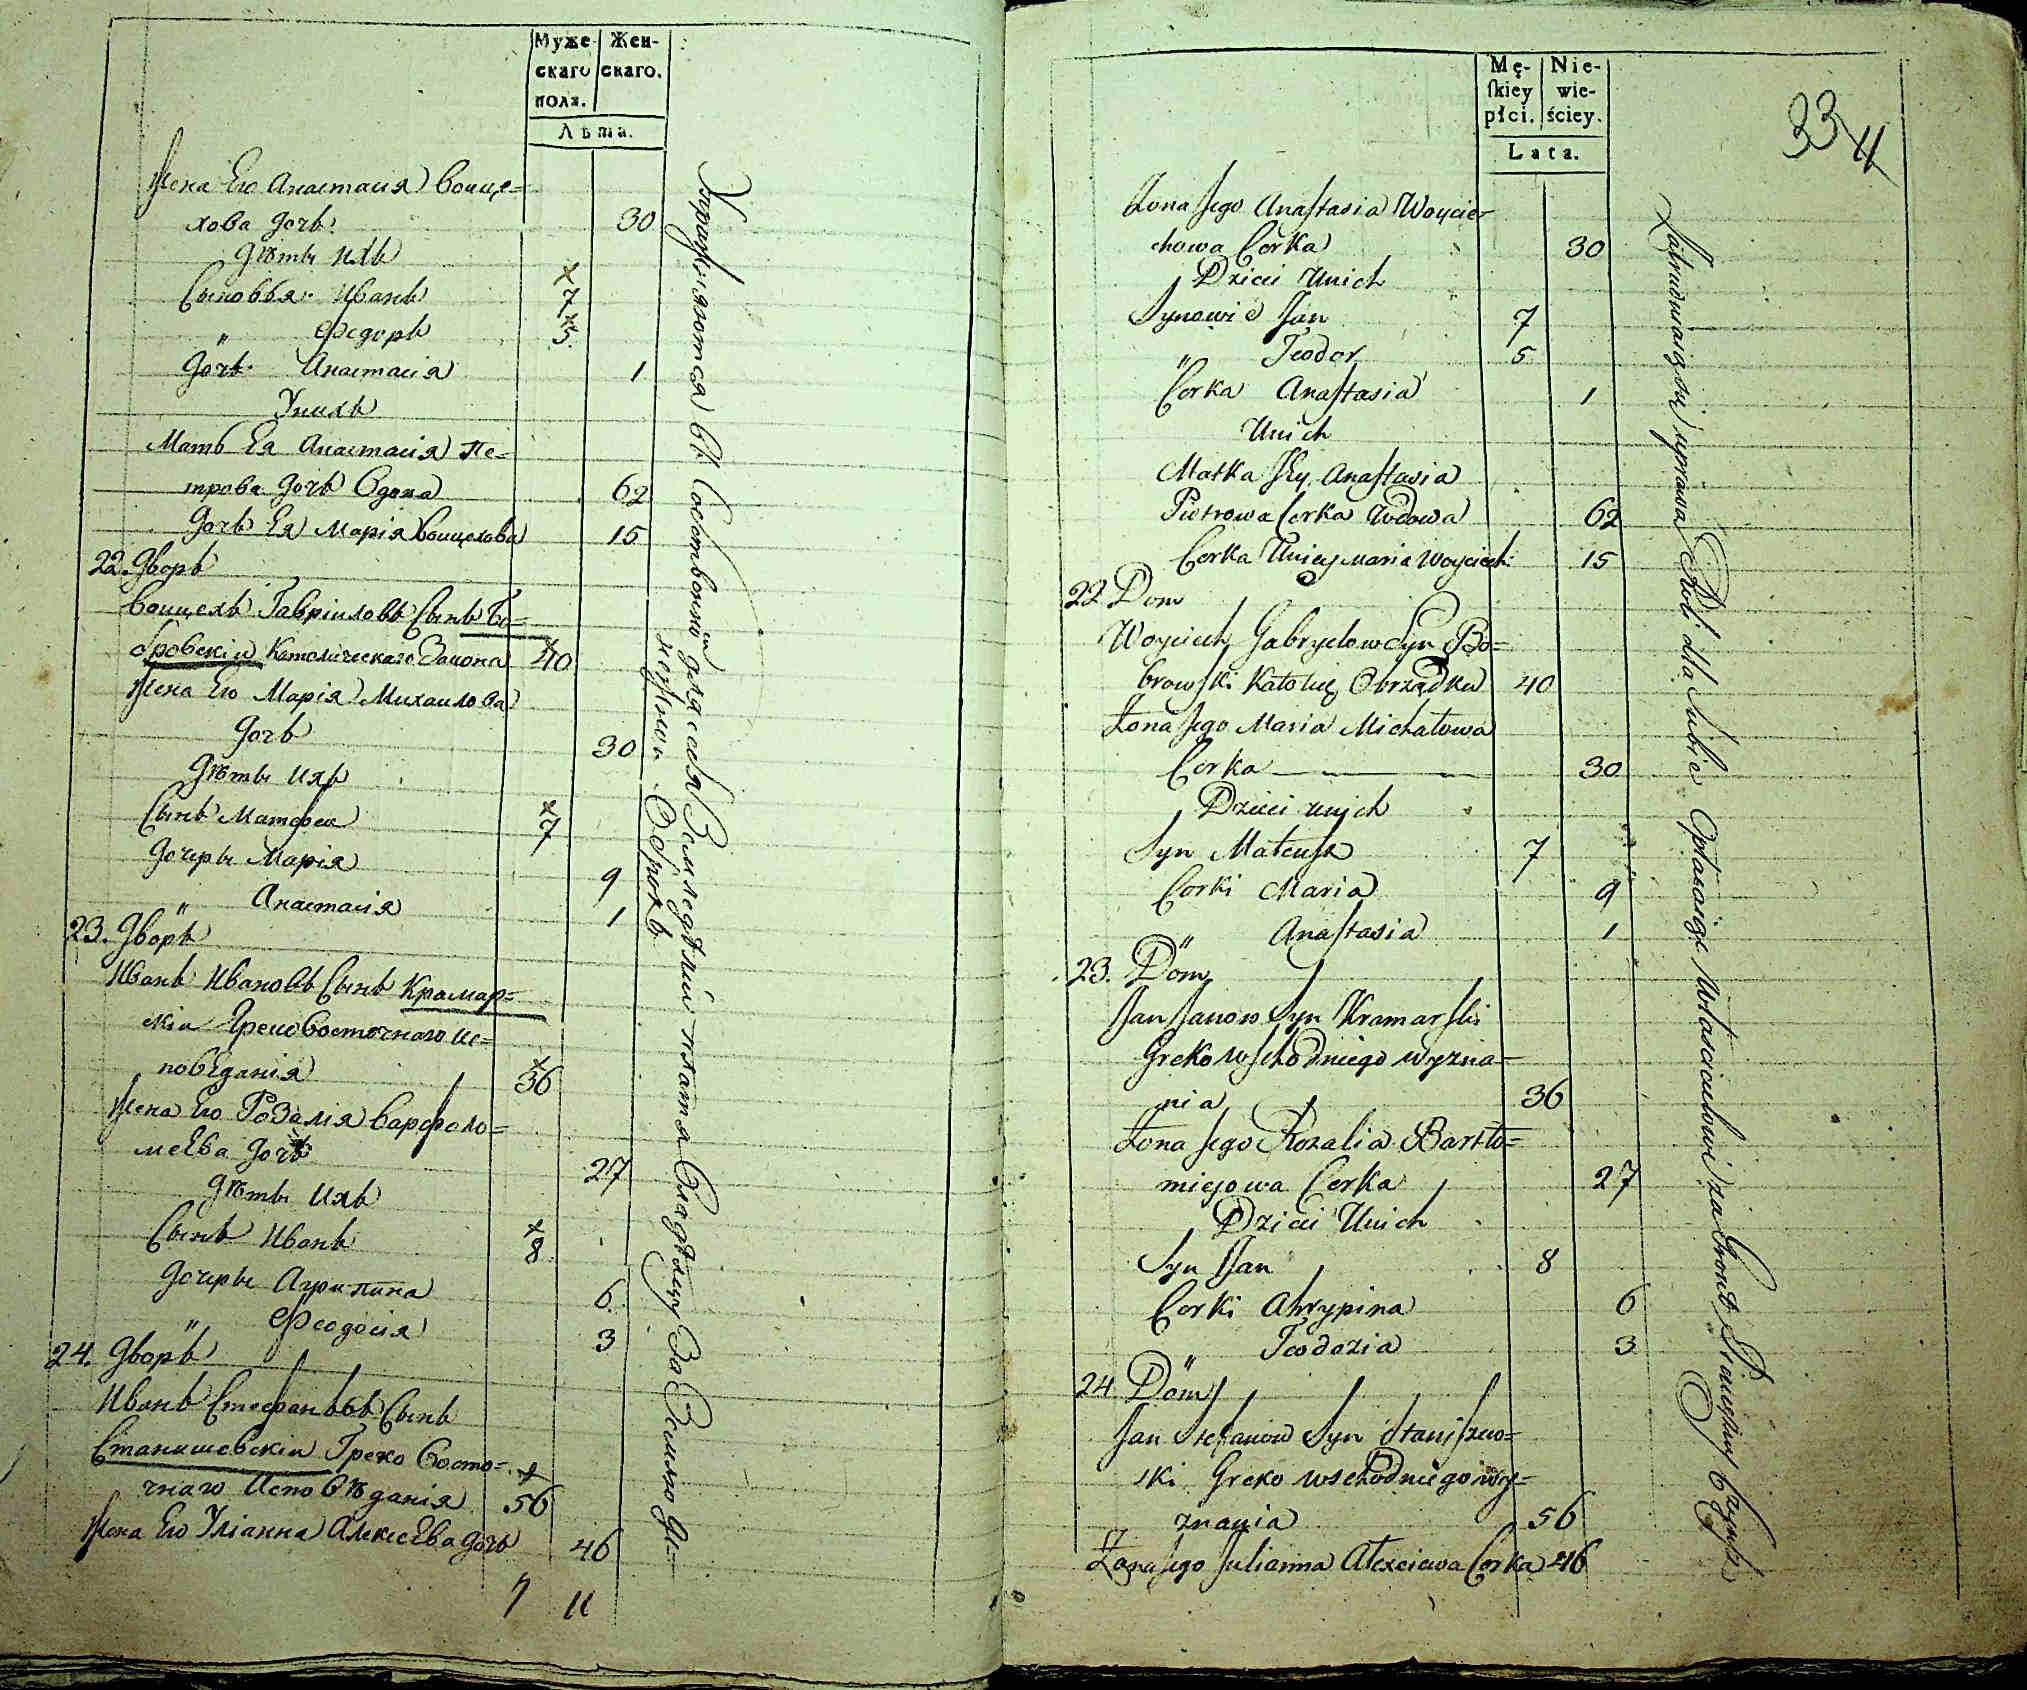 Муже- Жен-
скаго скаго.
пола.
Лѣта.
Жена Его Анастасія Войце=
хова дочь 30
Дѣти ихъ
Сыновья Иванъ 7
" Федоръ 5
Дочь Анастасія 1
У нихъ
Мать Ея Анастасія Пе=
трова дочь Вдова 62
Дочь Ея Марія Войцехова 15
22. Дворъ
Войцехъ Гавріиловъ Сынъ Бо=
бровскій Католическаго Закона 40
Жена Его Марія Михайлова
дочь 30
Дѣти ихъ
Сынъ Матфей 7
Дочери Марія 9
" Анастасія 1
23. Дворъ
Иванъ Ивановъ Сынъ Крамар=
скій Греко Восточнаго ис=
повЕданія 36
Жена Его Розалія Варфоло=
мЕева дочь 27
Дѣти ихъ
Сынъ Иванъ 8
Дочери Агрипина 6
" Феодосія 3
24. Дворъ
Иванъ Стефановъ Сынъ
Станишевскій Греко Восто=
чнаго Исповѣданія 56
Жена Его Уліанна АлексЕева дочь 46
7 11
Упражняются въ собственномъ для себя Земледѣліи платя Владѣльцу За Землю де=
нежный Оброкъ
Mę- Nie-
skiey wie-
płci. ściey.
Lata.
33
11
Żona Jego Anastasia Woycie-
chowa Corka 30
Dzieci Unich
Synowie Jan 7
" Teodor 5
Corka Anastasia 1
Unich
Matka Jey Anastasia
Piotrowa Corka Wdowa 62
Corka Uniey Maria Woyciech: 15
22 Dom
Woyciech Gabryelow Syn Bo=
browski Katolic Obrządku 40
Żona Jego Maria Michałowa
Corka 30
Dzieci unich
Syn Mateusz 7
Corki Maria 9
" Anastasia 1
23. Dom
Jan Janow Syn Kramarski
Greko wschodniego wyzna=
nia 36
Żona Jego Rozalia Bartło=
mieiowa Corka 27
Dzieci Unich
Syn Jan 8
Corki Ahrypina 6
" Teodozia 3
24 Dom
Jan Stefanow Syn Staniszew=
ski Greko wschodniego wy=
znania 56
Żona Jego Julianna Alexciewa Corka 46
Zatrudniaią się uprawą Roli dla Siebie Opłacaiąc Właścicielowi za Grunt Pieniężny Czynsz